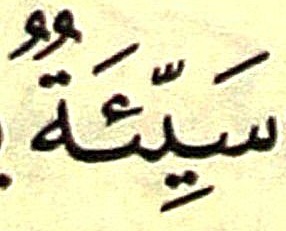 سَيِّئَةٌ